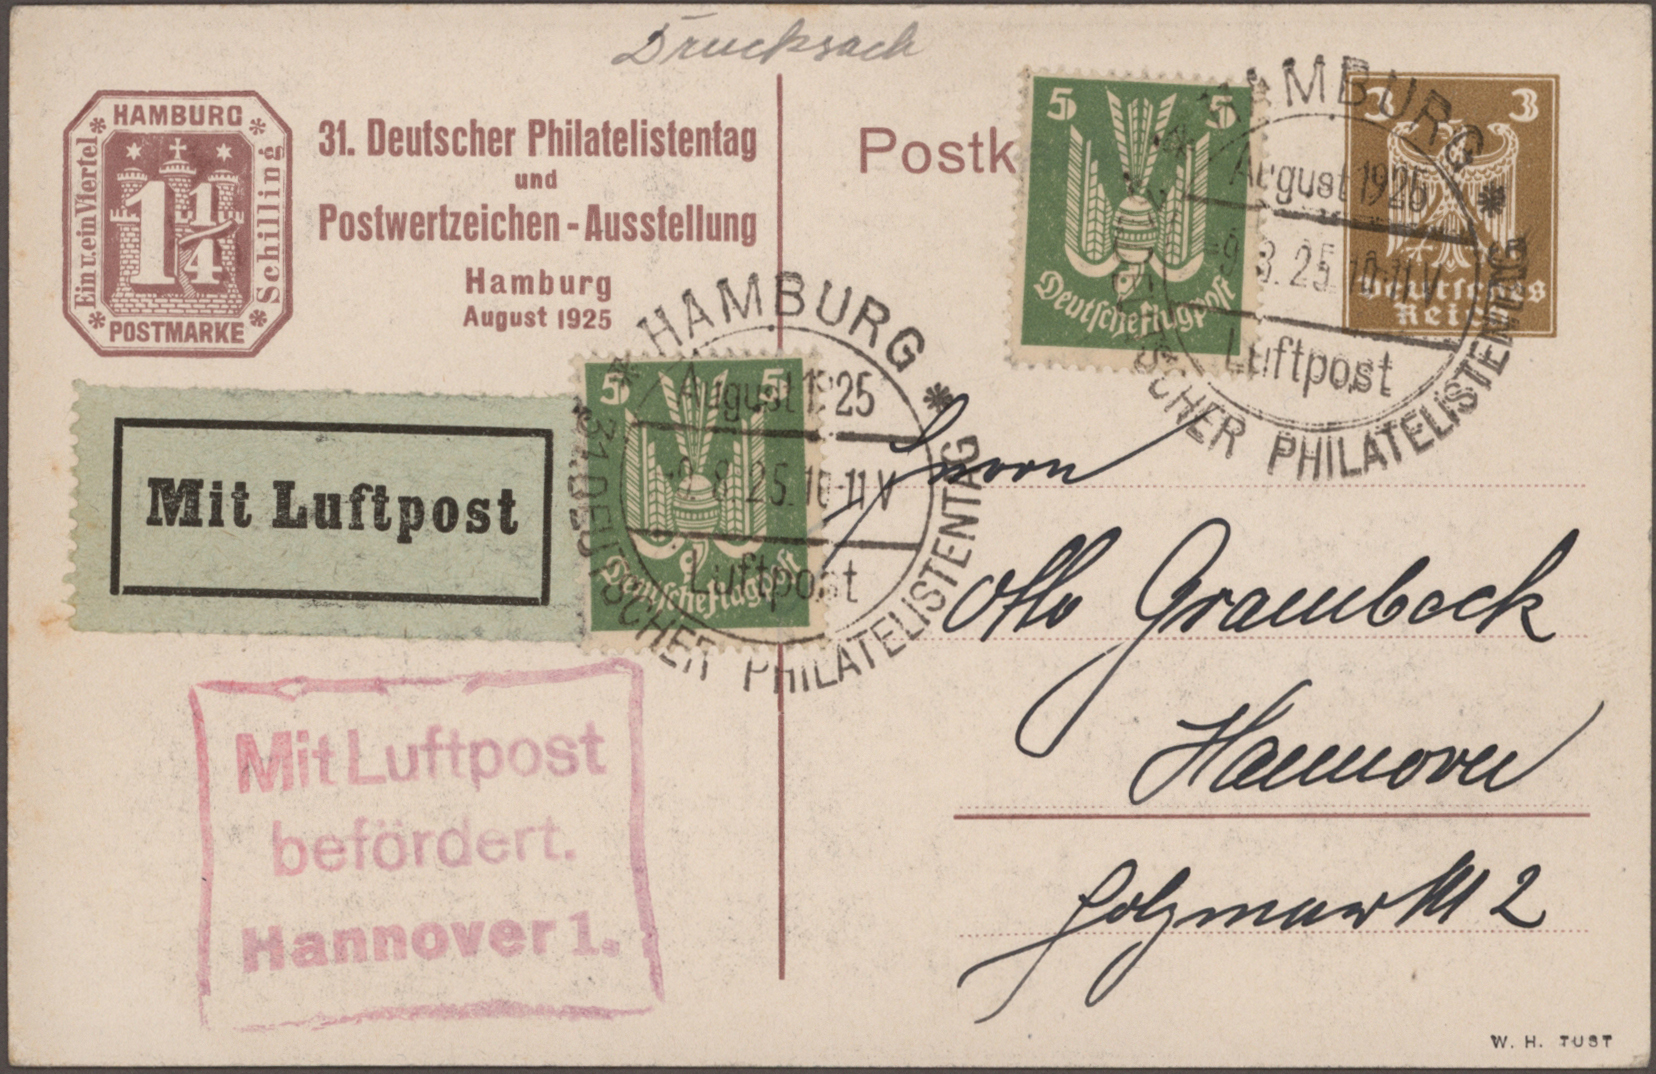 Drucksach
HAMBURG
Ein u. ein Viertel
Schilling
1 1/4
POSTMARKE
31. Deutscher Philatelistentag
und
Postwertzeichen-Ausstellung
Hamburg
August 1925
Postk
5 5
Deutsche Flugpost
3 3
Deutsches
Reich
HAMBURG
August 1925
-9.8.25.10-11V
Luftpost
31. DEUTSCHER PHILATELISTENTAG
5 5
Deutsche Flugpost
HAMBURG
August 1925
-9.8.25.10-11V
Luftpost
31. DEUTSCHER PHILATELISTENTAG
Mit Luftpost
Otto Grambeck
Hannover
Holzmarkt 2
Mit Luftpost
befördert.
Hannover 1.
W. H. TUST